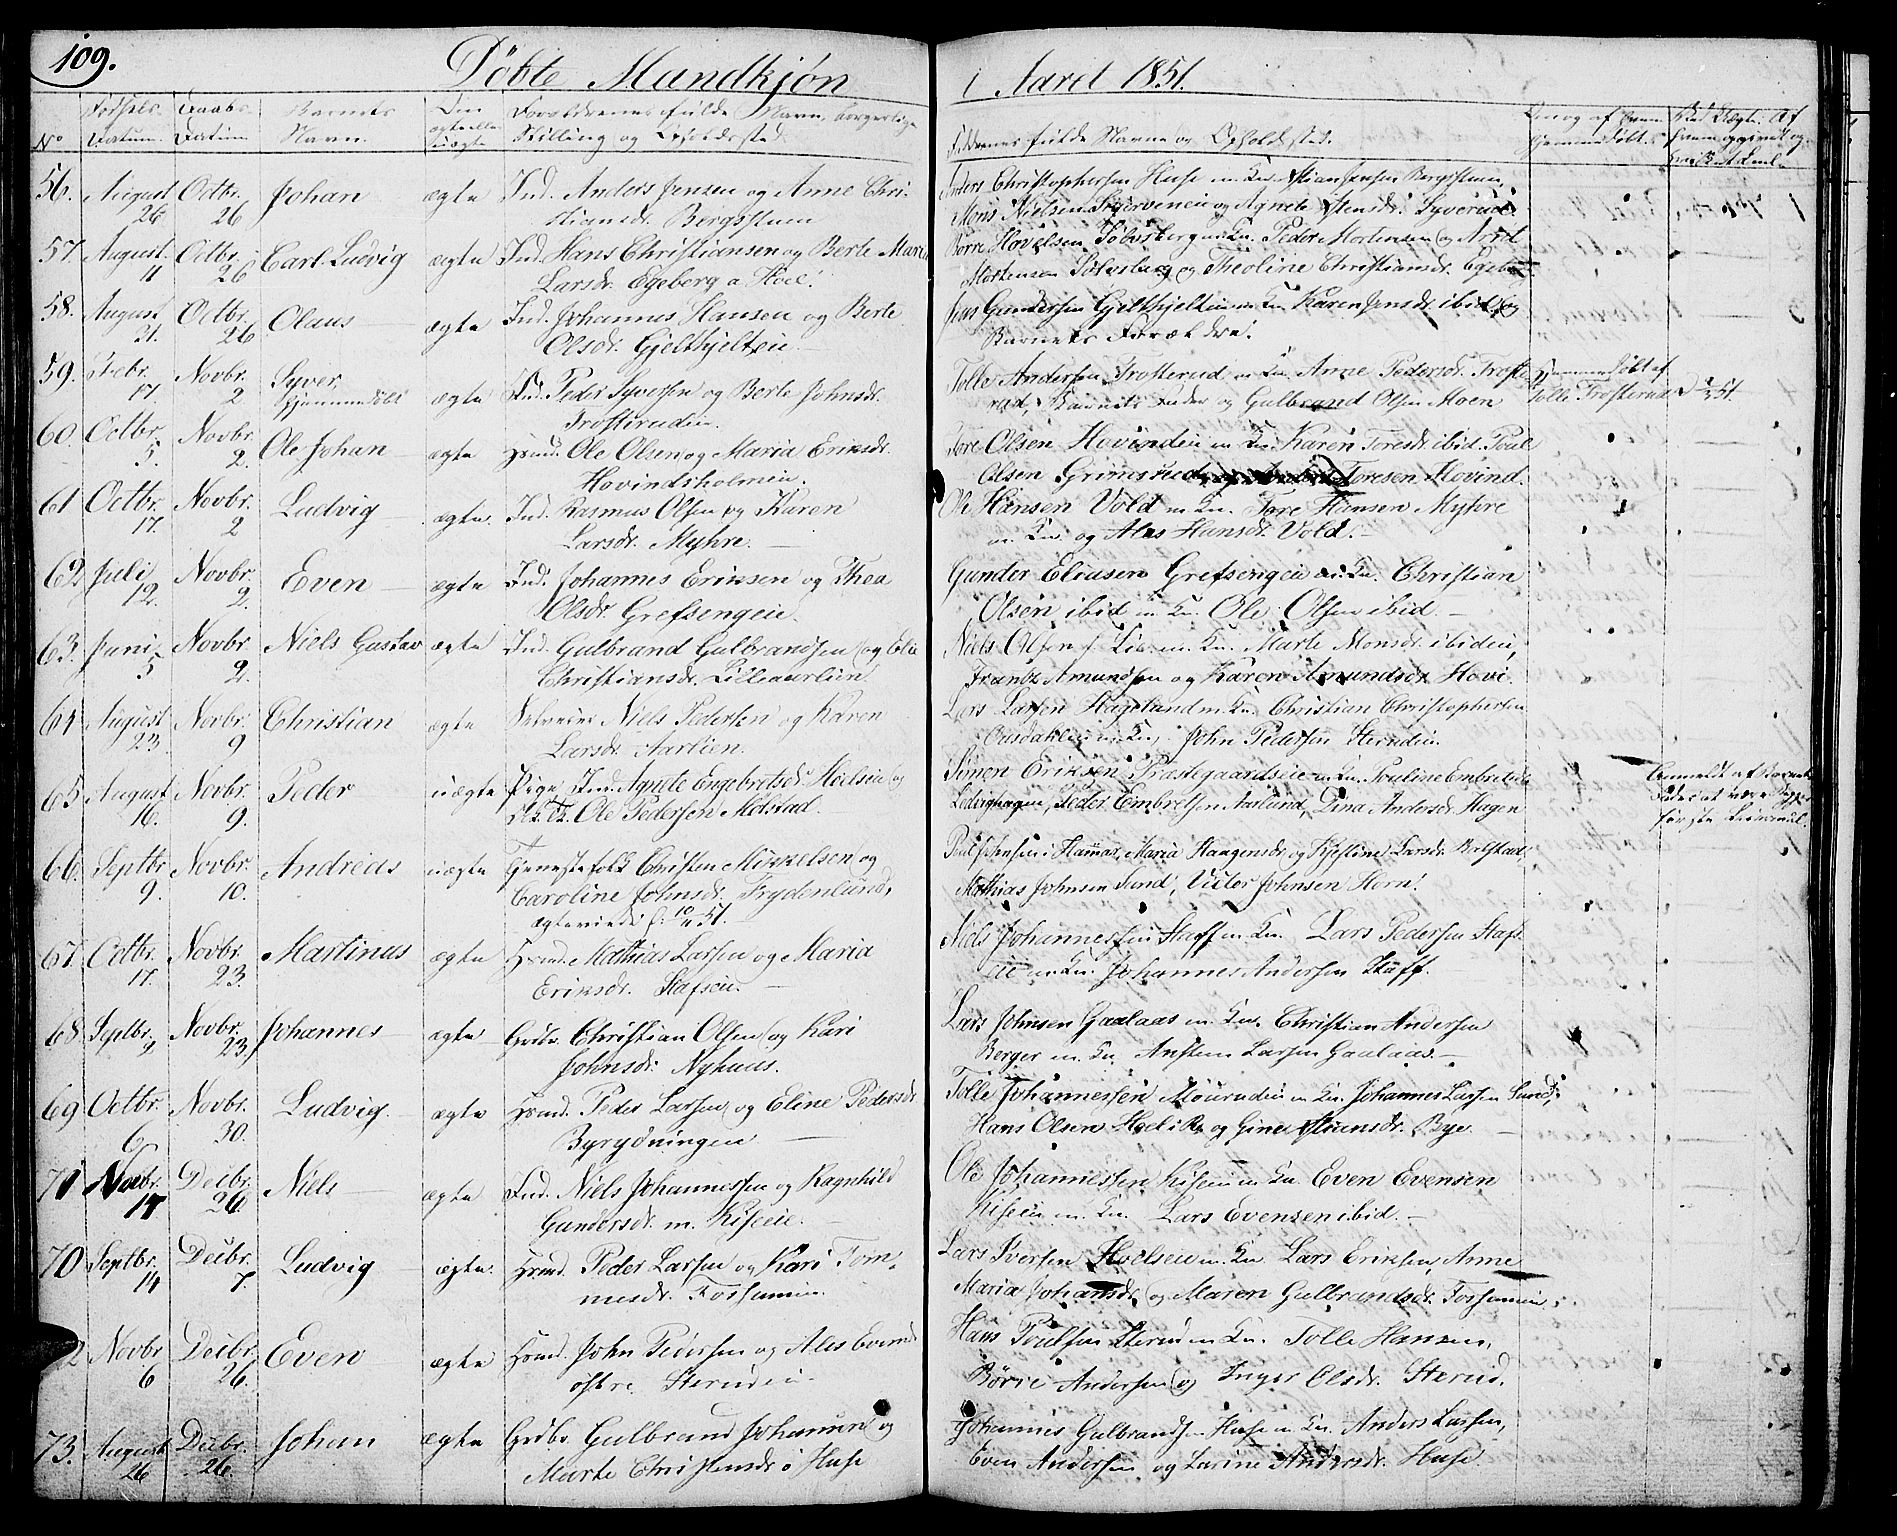 109.
Döbte Mandkjøn
i Aaret 1851.
No
Fødsels Datum.
Daabs Datum
Barnets Navn.
Om ægte eller uægte
Forældrenes fulde Navn, borgerlige Stilling og Opholdssted
Faddernes fulde Navne og Opholdssted.
56. August 26 Octbr. 26 Johan ægte Ind. Anders Jensen og Anne Chri-
stiansdr. Bergsteen
Anders Christophersen Huse m. Kn. Stian Jensen Bergsteen,
Mons Nielsen og Agnete Stensdr. Syverud.
57. August 11 Octbr. 26 Carl Ludvig ægte Ind. Hans Christiansen og Berte Marie
Larsdr. Egeberg a Hoel.
Børre Hovelsen Sölvsberg m. Kn. Peder Mortensen og Arnt
Mortensen Sölvsberg og Theoline Christiansdr. Egeberg
58. August 21. Octbr. 26 Olaus ægte Ind. Johannes Hansen og Berte
Olsdr. Gjelthjelteie
Jens Gundersen Gjelthjelteie m. Kn. Karen Jensdr. ibid. og
Barnets Forældre.
59. Febr. 17. Novbr. 2 Syver, hjemmedöbt ægte Ind. Peder Syversen og Berte Johnsdr.
Trosterudeie.
Tolle Andersen Trosterud m. Kn. Anne Pedersdr. Troste-
rud, Barnets Fader og Gulbrand Olsen Moen
hjemmedöbt af
Tolle Trosterud
60. Octbr. 5. Novbr. 2. Ole Johan ægte Hmd. Ole Olsen og Maria Eriksdr.
Hovindsholmeie.
Tore Olsen Hovindeie m. Kn. Karen Toresdr. ibid. Poul
Olsen Grimsrud Toresen Hovind.
61 Octbr. 17. Novbr. 2 Ludvig ægte. Ind. Rasmus Olsen og Karen
Larsdr. Myhre.
Ole Hansen Vold m. Kn. Tore Hansen Myhre
m. Kn. og Ales Hansdr. Vold.
62 Juli 12. Novbr. 2. Even ægte Ind. Johannes Eriksen og Thea
Olsdr. Grefsengeie.
Gunder Eliasen Grefsengeie m. Kn. Christian
Olsen ibid m. Kn. Ole Olsen ibid.
63. Juni 5 Novbr 2. Niels Gustav ægte Ind. Gulbrand Gulbrandsen og Elie
Christiansdr. Lilleaarlien
Niels Olsen Lie m. Kn. Marte Monsdr. ibideie,
Frantz Amundsen og Karen Amundsdr. Hovi.
64 August 23. Novbr. 9 Christian ægte Niels Pedersen og Karen
Larsdr. Aarlien.
Lars Larsen Hageland m. Kn. Christian Christophersen
m. Kn. John Pedersen Sterudeie.
65 August 16. Novbr. 9. Peder uægte Pige, Ind. Agnete Engebretsdr. Hoelseie og
Ole Pedersen Molstad.
Simen Eriksen Præstegaardseie m. Kn. Pouline Embretsdr.
Peder Embretsen Aarlund, Dina Andersdr. Hagen
Anmeldt af Barnets
Fader at være
første Leiermaal.
66. Septbr 9. Novbr. 10. Andreas uægte Tjenestefolk Christen Mikkelsen og
Caroline Johnsdr. Frydenlund,
ægteviede 10/11 51.
Poul Jensen i Hammer, Maria Haagensdr. og Kjestine Larsdr. Bolstad
Mathias Johnsen Sund, Victor Johnsen Horn.
67. Octbr. 17. Novbr. 23. Martinus ægte Hmd. Mathias Larsen og Maria
Eriksdr. Stafseie.
Niels Johannessen Staff m. Kn. Lars Pedersen Staf-
eie m. Kn. Johannes Andersen Staff.
68 Septbr. 9 Novbr. 23 Johannes ægte Grdbr. Christian Olsen og Kari
Johnsdr. Nyhuus.
Lars Johnsen Gaalaas m. Kn. Christian Andersen
Berger m. Kn. Ansten Larsen Gaalaas.
69 Octbr. 6 Novbr. 30. Ludvig. ægte Hmd. Peder Larsen og Eline Pedersdr.
Byrydningen
Tolle Johannessen Mourudeie m. Kn. Johannes Larsen Sund,
Hans Olsen Hoel og Gine Bye.
71 Novbr. 17 Decbr. 26 Niels ægte Ind. Niels Johannessen og Ragnhild
Gundersdr. m. Kiseeie.
Ole Johannessen Kiseeie m. Kn. Even Evensen
Kiseeie m. Kn. Lars Evensen ibid.
70 Septbr. 14 Decbr. 7. Ludvig ægte. Hmd. Peder Larsen og Kari Tom-
mesdr. Forsuneie.
Lars Iversen Hoelseie m. Kn. Lars Eriksen, Anne
Maria Johansdr. og Maren Gulbrandsdr. Forsuneie.
2 Novbr 6 Decbr. 26. Even ægte Hmd. John Pedersen og Ales Evensdr.
østre Sterudeie.
Hans Poulsen Sterud m. Kn. Tolle Hansen,
Börre Andersen og Inger Olsdr. Sterud.
73. August 26 Decbr. 26. Johan ægte Grdbr. Gulbrand Johannesen og
Marte Christensdr. Huse
Johannes Gulbrandsen Huse m. Kn. Anders Larsen,
Even Andersen og Karine Andersdr. Huse.